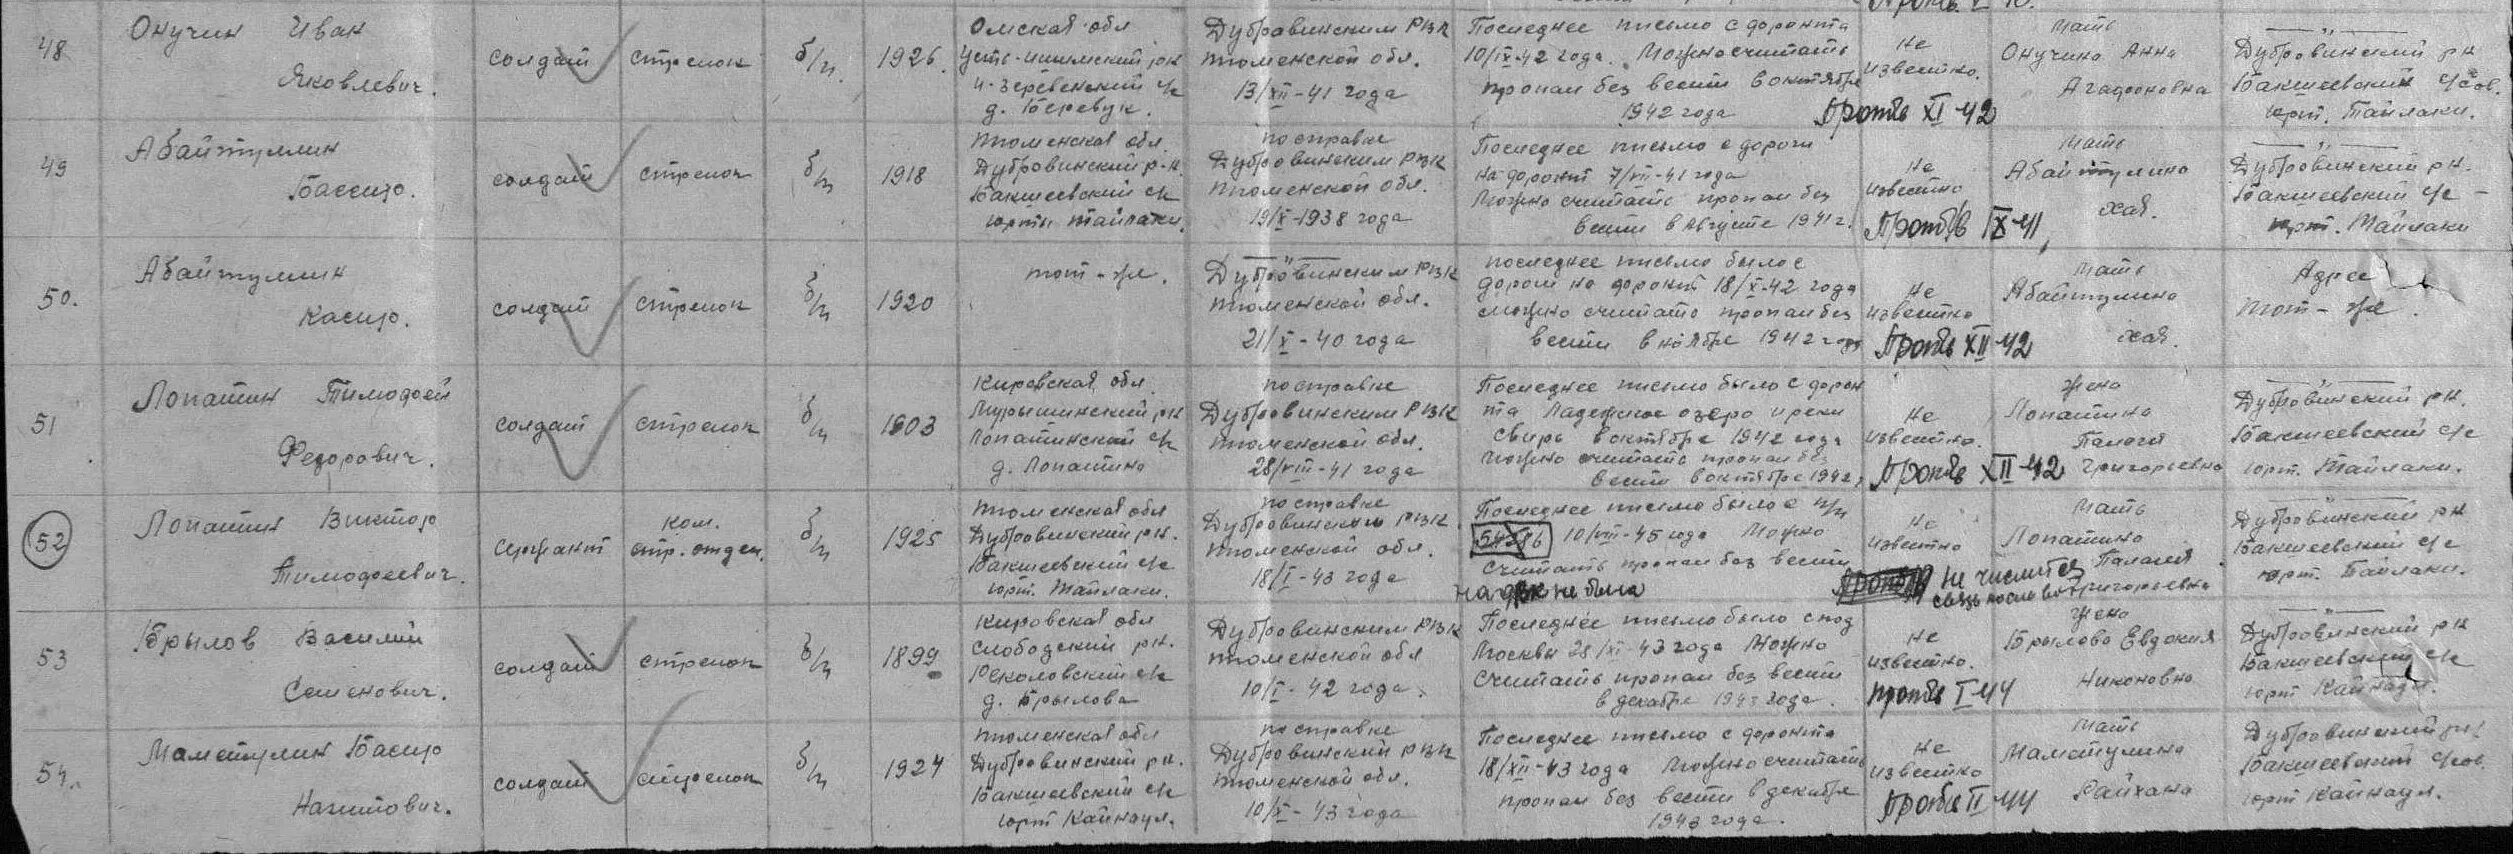 48
Онучин Иван
Яковлевич.
солдат
стрелок
б/п.
1926.
Омская обл
Усть-Ишимский рн
д. Беревук.
Дубравинским РВК
тюменской обл.
13/XII-41 года
Последнее письмо с фронта
10/IX-42 года. Можно считать
пропал без вести в октябре
1942 года
не
известно.
Против XI 42
мать
Онучина Анна
Агафоновна
Дубровинский рн
Бакшеевский с/сов.
юрт. Тайлаки.
49
Абайтуллин
Бассир.
солдат
стрелок
б/п
1918
тюменская обл.
Дубровинский р-н.
Бакшеевский с/с
юрты Тайлаки.
по справке
Дубровинским РВК
тюменской обл.
19/X-1938 года
Последнее письмо с дороги
на фронт 7/VII-41 года
Можно считать пропал без
вести в августе 1941 г.
не
известно
IX-41
мать
Абайтулина
хая.
Дубровинский рн.
Бакшеевский с/с -
юрт. Тайлаки
50.
Абайтуллин
Касир.
солдат
стрелок
б/п
1920
тот-же.
Дубровинским РВК
тюменской обл.
21/X-40 года
последнее письмо было с
дороги на фронт 18/X-42 года
можно считать пропал без
вести в ноябре 1942 года
не
известно
XII-42
мать
Абайтулина
хая.
Адрес
тот-же.
51
Лопатин Тимофей
Федорович.
солдат
стрелок
б/п
1903
Кировская обл.
Мурашинский рн
Лопатинский с/с
д. Лопатино
по справке
Дубровинским РВК
тюменской обл.
28/VIII-41 года
Последнее письмо было с фрон
та Ладежское озеро и реки
Свирь в октябре 1942 года
Можно считать пропал без
вести в октябре 1942 г
не
известно.
XII-42
жена
Лопатина
Палагея
Григорьевна
Дубровинский рн.
Бакшеевский с/с
юрт. Тайлаки.
52
Лопатин Виктор
Тимофеевич.
сержант
ком.
стр. отдел.
б/п
1925
тюменская обл
Дубровинский рн.
Бакшеевский с/с
юрт. Тайлаки.
по справке
Дубровинским РВК.
тюменской обл.
18/I-43 года
Последнее письмо было с п/п
10/VIII-45 года Можно
считать пропал без вести
не
известно
не числится
связь после
мать
Лопатина
Палагея
Григорьевна
Дубровинский рн
Бакшеевский с/с
юрт. Тайлаки.
53
Брылов Василий
Семенович.
солдат
стрелок
б/п
1899
Кировская обл
Слободский рн.
д. Брылова
Дубровинским РВК
тюменской обл
10/I-42 года.
Последнее письмо было с под
Москвы 28/XI-43 года Можно
считать пропал без вести
в декабре 1943 года.
не
известно.
I-44
жена
Брылова Евдокия
Никоновна
Дубровинский рн
Бакшеевский с/с
юрт Кайнаул.
54.
Маметулин Басир
Нагитович.
солдат
стрелок
б/п
1924
тюменская обл
Дубровинский рн.
Бакшеевский с/с
юрт Кайнаул.
по справке
Дубровинский РВК
тюменской обл.
10/X-43 года
Последнее письмо с фронта
18/XII-43 года Можно считать
пропал без вести в декабре
1943 года.
не
известно
II-44
мать
Маметулина
Райхана
Дубровинский рн.
Бакшеевский с/сов.
юрт Кайнаул.